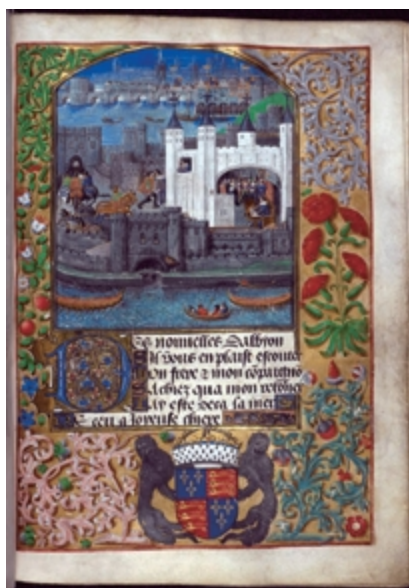 Des nouuelles Dalbyon
Sil vous en plaist escouter
Mon frere & mon cõpaignõ
Sachiez qua mon retoner
Jay este deca la mer
Receu a ioyeuse chiere